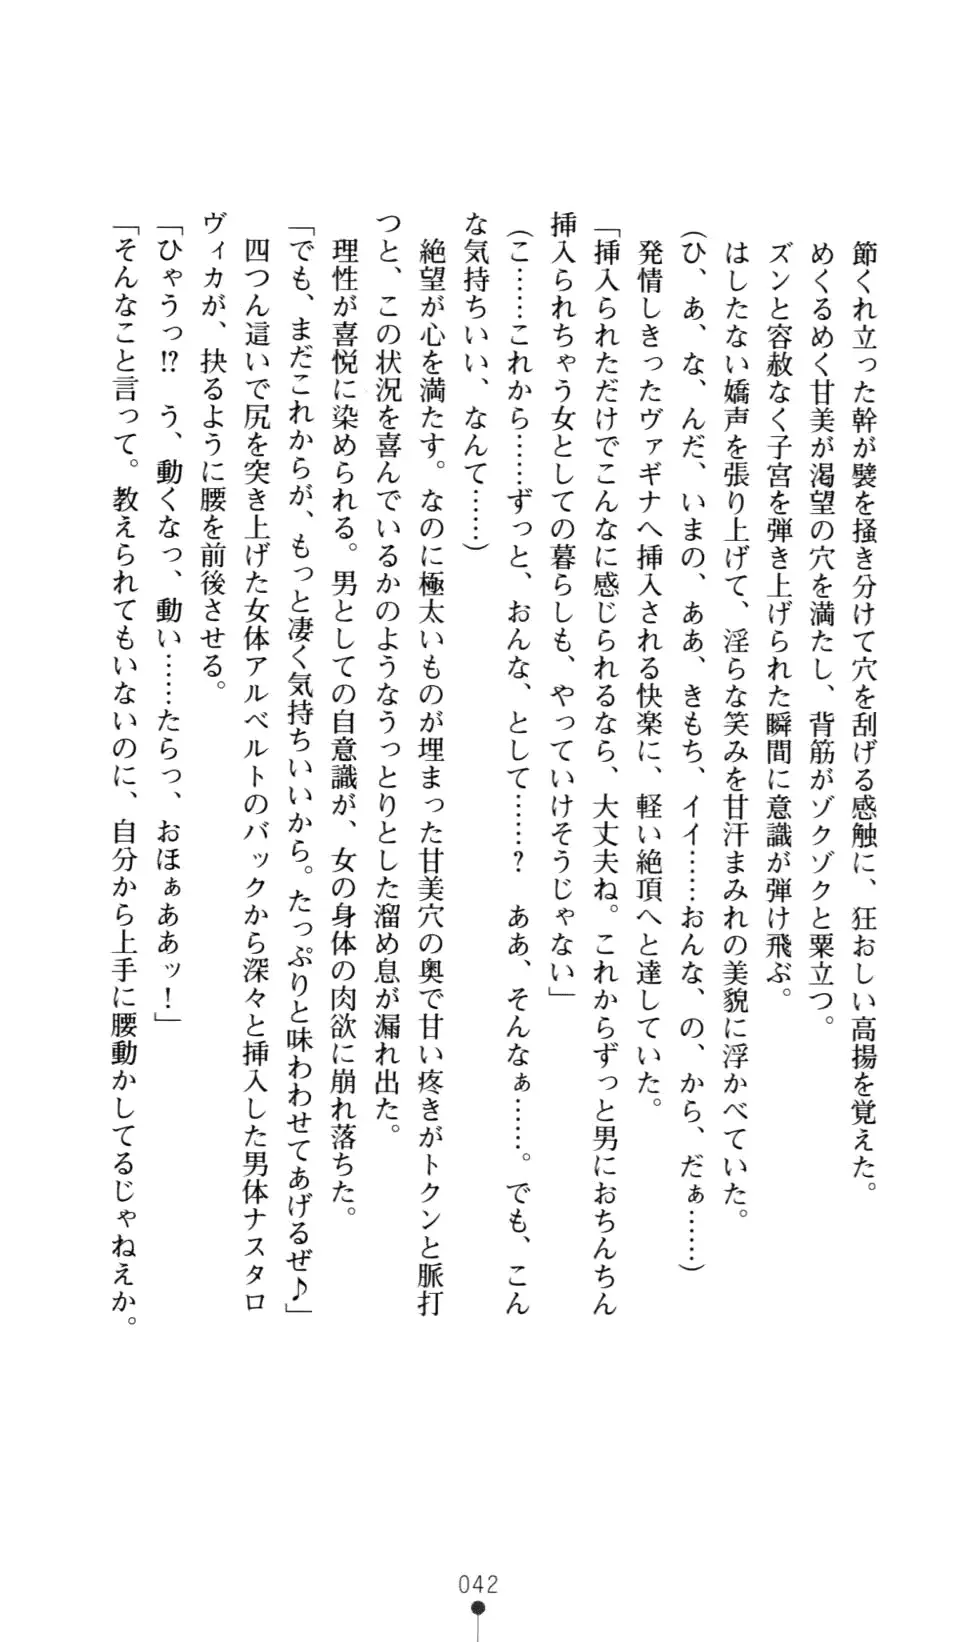 節くれ立った幹が襞を掻き分けて穴を刮げる感触に、狂おしい高揚を覚えた。
めくるめく甘美が渇望の穴を満たし、背筋がゾクゾクと粟立つ。
ズンと容赦なく子宮を弾き上げられた瞬間に意識が弾け飛ぶ。
はしたない嬌声を張り上げて、淫らな笑みを甘汗まみれの美貌に浮かべていた。
(ひ、あ、な、んだ、いまの、ああ、きもち、イイ……おんな、の、から、だぁ……)
発情しきったヴァギナへ挿入される快楽に、軽い絶頂へと達していた。
「挿入られただけでこんなに感じられるなら、大丈夫ね。これからずっと男におちんちん
挿入られちゃう女としての暮らしも、やっていけそうじゃない」
(こ……これから……ずっと、おんな、として……? ああ、そんなぁ……。でも、こん
な気持ちいい、なんて……)
絶望が心を満たす。なのに極太いものが埋まった甘美穴の奥で甘い疼きがトクンと脈打
つと、この状況を喜んでいるかのようなうっとりとした溜め息が漏れ出た。
理性が喜悦に染められる。男としての自意識が、女の身体の肉欲に崩れ落ちた。
「でも、まだこれからが、もっと凄く気持ちいいから。たっぷりと味わわせてあげるぜ♪」
四つん這いで尻を突き上げた女体アルベルトのバックから深々と挿入した男体ナスタロ
ヴィカが、抉るように腰を前後させる。
「ひゃうっ!? う、動くなっ、動い……たらっ、おほぁああッ!」
「そんなこと言って。教えられてもいないのに、自分から上手に腰動かしてるじゃねえか。
042